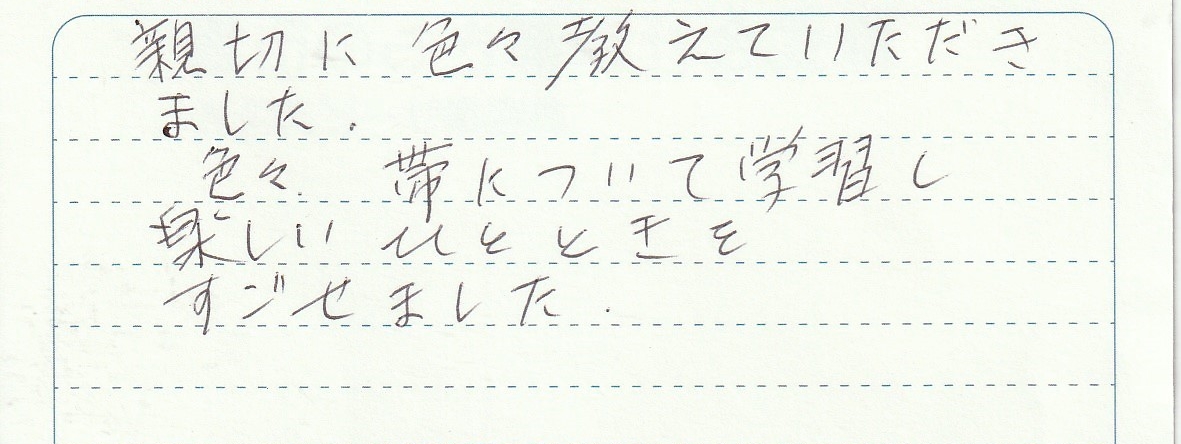 親切に色々教えていただき
ました.
色々.帯について学習し
楽しいひとときを
すごせました.